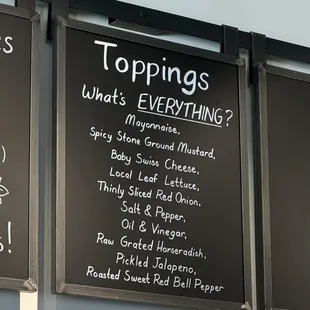 s
Toppings
What's EVERYTHING?
Mayonnaise,
Spicy Stone Ground Mustard,
Baby Swiss Cheese,
Local Leaf Lettuce,
Thinly Sliced Red Onion,
Salt & Pepper,
Oil & Vinegar,
Raw Grated Horseradish,
Pickled Jalapeno,
Roasted Sweet Red Bell Pepper
)
s!